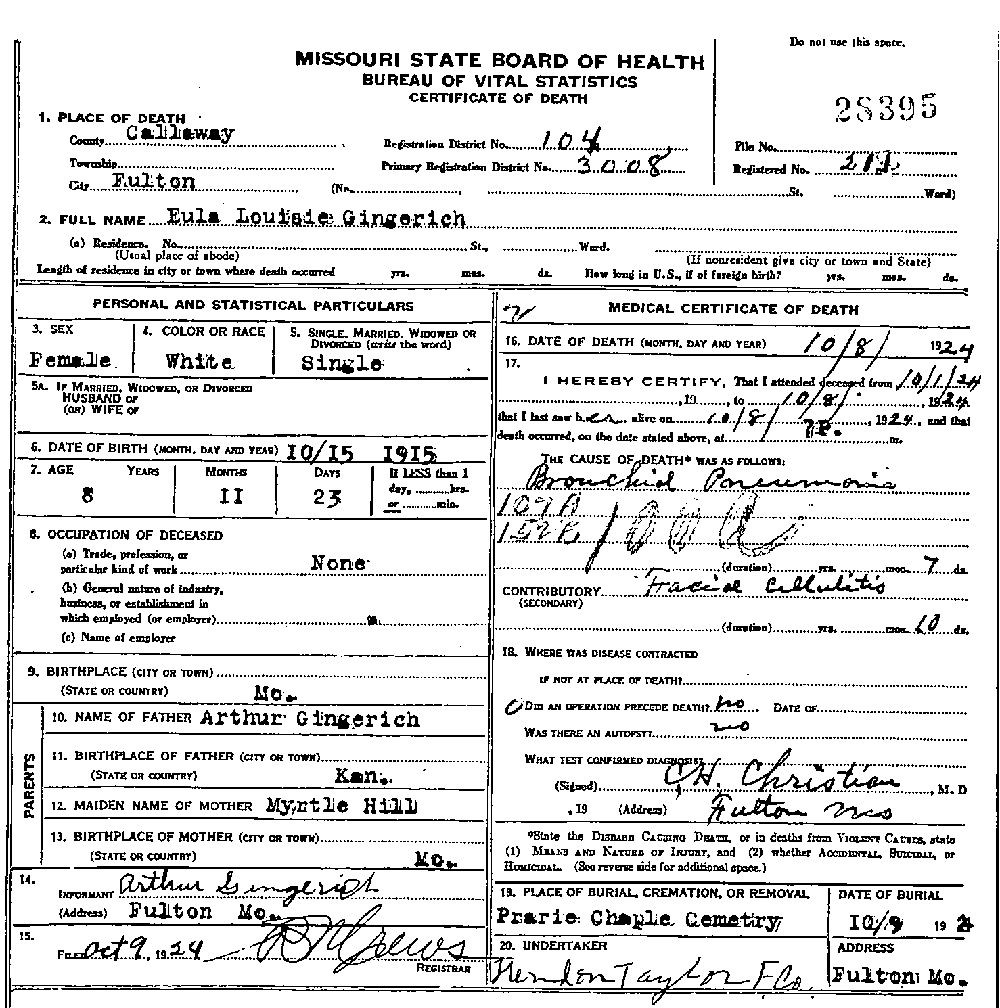 Do not use this space.
MISSOURI STATE BOARD OF HEALTH
BUREAU OF VITAL STATISTICS
CERTIFICATE OF DEATH
28395
1. PLACE OF DEATH
County Callaway
Registration District No. 104
File No.
Township
Primary Registration District No. 3008
Registered No.
City Fulton (No. St. Ward)
2. FULL NAME Eula Louisie Gingerich
(a) Residence. No. St., Ward.
(Usual place of abode) (If nonresident give city or town and State)
Length of residence in city or town where death occurred yrs. mos. ds. How long in U.S., if of foreign birth? yrs. mos. ds.
PERSONAL AND STATISTICAL PARTICULARS
3. SEX 4. COLOR OR RACE 5. SINGLE, MARRIED, WIDOWED OR
DIVORCED (write the word)
Female White Single
5A. IF MARRIED, WIDOWED, OR DIVORCED
HUSBAND OF
(OR) WIFE OF
6. DATE OF BIRTH (MONTH, DAY AND YEAR) 10/15 1915
7. AGE YEARS MONTHS DAYS If LESS than 1
day, hrs.
or min.
8 11 23
8. OCCUPATION OF DECEASED
(a) Trade, profession, or
particular kind of work None
(b) General nature of industry,
business, or establishment in
which employed (or employer)
(c) Name of employer
9. BIRTHPLACE (CITY OR TOWN)
(STATE OR COUNTRY) Mo.
PARENTS
10. NAME OF FATHER Arthur Gingerich
11. BIRTHPLACE OF FATHER (CITY OR TOWN)
(STATE OR COUNTRY) Kan.
12. MAIDEN NAME OF MOTHER Myrtle Hill
13. BIRTHPLACE OF MOTHER (CITY OR TOWN)
(STATE OR COUNTRY) Mo.
14.
INFORMANT Arthur Gingerich
(Address) Fulton Mo.
15.
FILED Oct 9, 1924
REGISTRAR
2 MEDICAL CERTIFICATE OF DEATH
16. DATE OF DEATH (MONTH, DAY AND YEAR) 10/8/ 1924
17.
I HEREBY CERTIFY, That I attended deceased from 10/1/24
, 19 , to 10/8/ , 1924
that I last saw her alive on 10/8/ , 1924, and that
death occurred, on the date stated above, at m.
THE CAUSE OF DEATH* WAS AS FOLLOWS:
Bronchial Pneumonia
109A
100A
(duration) yrs. mos. 7 ds.
CONTRIBUTORY Facial Cellulitis
(SECONDARY)
(duration) yrs. mos. 10 ds.
18. WHERE WAS DISEASE CONTRACTED
IF NOT AT PLACE OF DEATH?
DID AN OPERATION PRECEDE DEATH? no DATE OF
WAS THERE AN AUTOPSY? no
WHAT TEST CONFIRMED DIAGNOSIS?
(Signed) C.H. Christian, M. D
, 19 (Address) Fulton Mo
*State the DISEASE CAUSING DEATH, or in deaths from VIOLENT CAUSES, state
(1) MEANS AND NATURE OF INJURY, and (2) whether ACCIDENTAL, SUICIDAL, or
HOMICIDAL. (See reverse side for additional space.)
19. PLACE OF BURIAL, CREMATION, OR REMOVAL DATE OF BURIAL
Prarie Chaple Cemetry 10/9 192
20. UNDERTAKER ADDRESS
Herndon Taylor F Co. Fulton Mo.